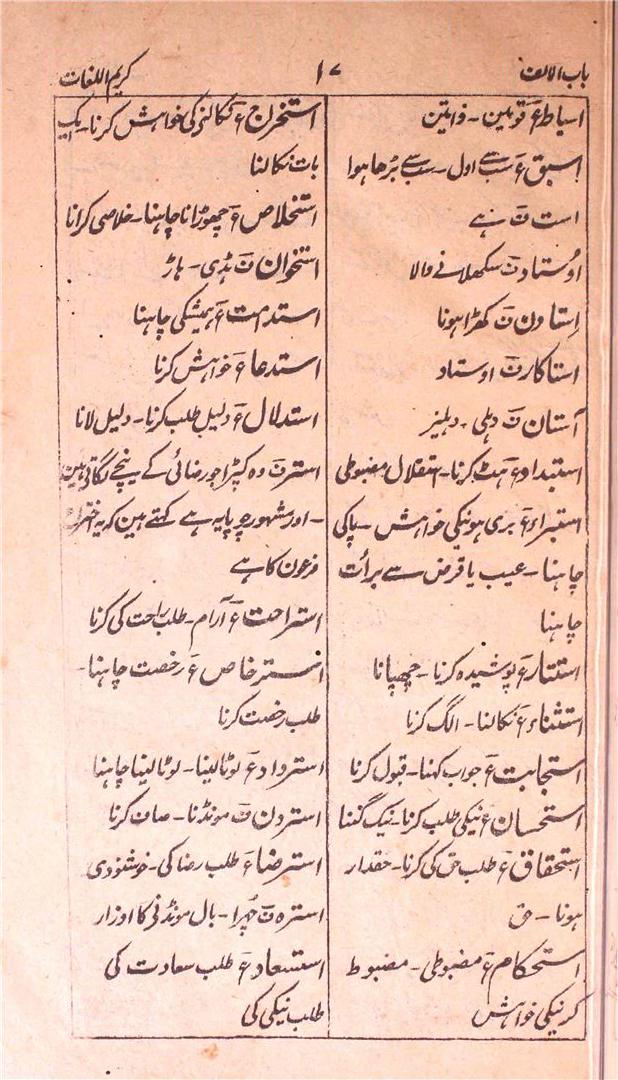 باب الالف
۱۷
کریم اللغات
اسباط ءَ قومین - نواسین
اسبق ءَ سب سے اول - سب سے بڑھا ہوا
است فَ ہے
اوُستاد فَ سکھلانے والا
اِستادن فَ کھڑا ہونا
استاکار فَ اوستاد
آستان فَ دہلی - دہلیز
استبداد ءَ ہٹ کرنا - استقلال مضبوطی
استبراء ءَ بری ہونیکی خواہش - پاکی
چاہنا - عیب یا قرض سے برأت
چاہنا
استتار ءَ پوشیدہ کرنا - چھپانا
استثناء ءَ نکالنا - الگ کرنا
استجابت ءَ جواب کہنا - قبول کرنا
استحسان ءَ نیکی طلب کرنا - نیک گننا
استحقاق ءَ طلب حق کی کرنا - حقدار
ہونا - حق
استحکام ءَ مضبوطی - مضبوط
کرنیکی خواہش
استخراج ءَ نکالنے کی خواہش کرنا - ایک
بات نکالنا
استخلاص ءَ چھوڑانا چاہنا - خلاصی کرانا
استخوان فَ ہڈی - ہاڑ
استدامت ءَ ہمیشگی چاہنا
استدعا ءَ خواہش کرنا
استدلال ءَ دلیل طلب کرنا - دلیل لانا
استر فَ وہ کپڑا جو رضائی کے نیچے لگاتی ہین
- اور مشہور چوپایہ ہے کہتے ہین کہ یہ اختراع
فرعون کا ہے
استراحت ءَ آرام - طلب راحت کی کرنا
استرخاص ءَ رخصت چاہنا -
طلب رخصت کرنا
استرداد ءَ لوٹا لینا - لوٹا لینا چاہنا
استردن فَ مونڈنا - صاف کرنا
استرضا ءَ طلب رضا کی - خوشنودی
استرہ فَ چُہرا - بال مونڈنی کا اوزار
استسعاد ءَ طلب سعادت کی
طلب نیکی کی